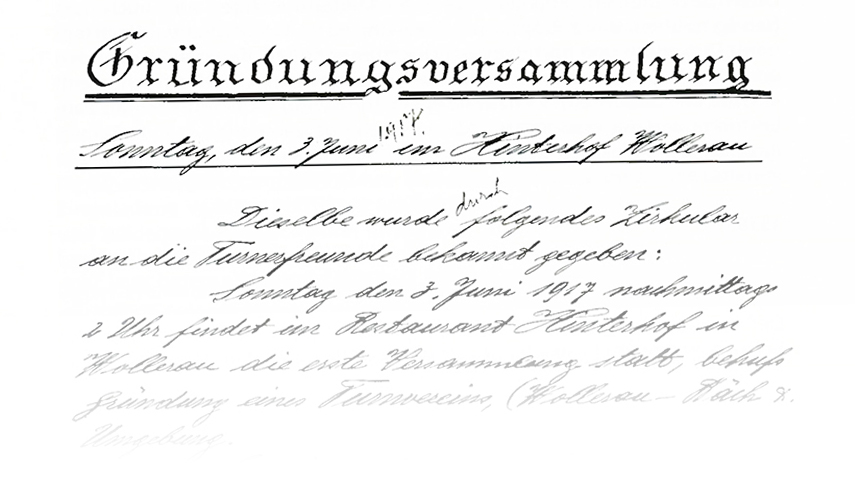 Gründungsversammlung
Sonntag, den 3. Juni 1917. im Hinterhof Wollerau
Dieselbe wurde durch folgendes Zirkular
an die Turnerfreunde bekannt gegeben:
Sonntag den 3. Juni 1917 nachmittags
2 Uhr findet im Restaurant Hinterhof in
Wollerau die erste Versammlung statt, behufs
Gründung eines Turnvereins, (Wollerau - Bäch &.
Umgebung.